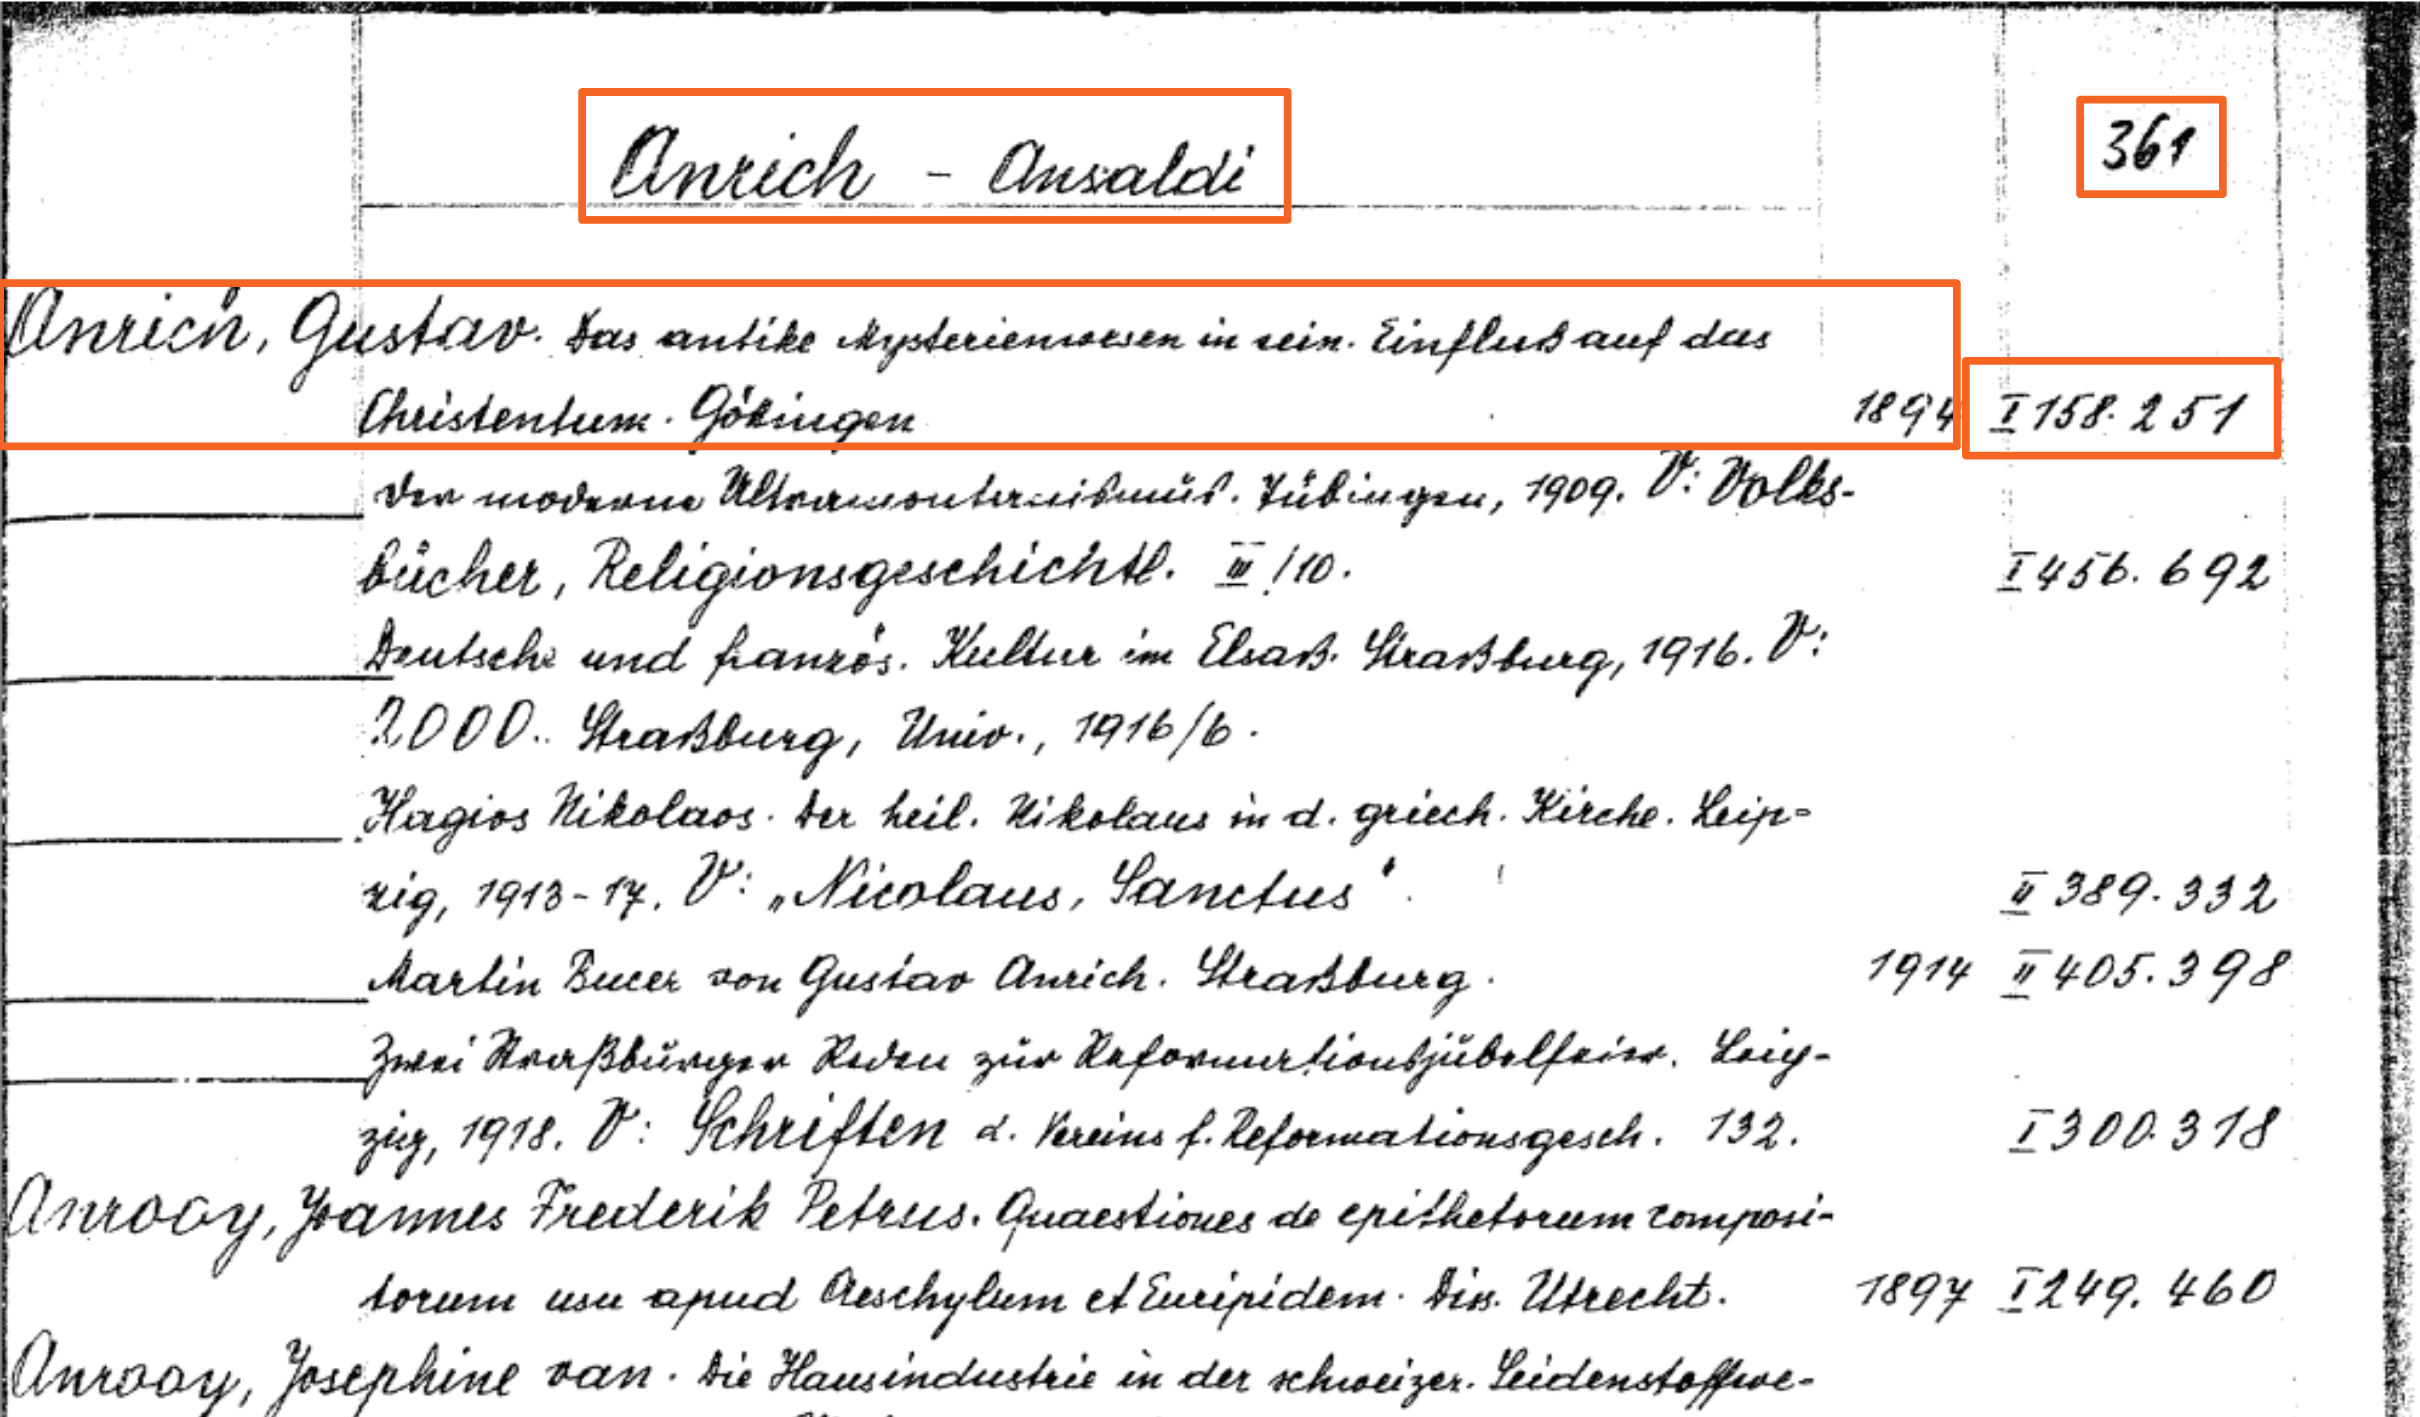 Anrich - Ansaldi 361
Anrich, Gustav. Das antike Mysterienwesen in sein. Einfluß auf das
Christentum. Göttingen 1894 I 158.251
Der moderne Ultramontanismus. Tübingen, 1909. V: Volks-
bücher, Religionsgeschichtl. III/10. I 456.692
Deutsche und französ. Kultur im Elsaß. Straßburg, 1916. V:
2000. Straßburg, Univ., 1916/6.
Hagios Nikolaos. Der heil. Nikolaus in d. griech. Kirche. Leip=
zig, 1913-17. V: „Nicolaus, Sanctus" II 389.332
Martin Bucer von Gustav Anrich. Straßburg. 1914 II 405.398
Zwei Straßburger Reden zur Reformationsjubelfeier. Leip-
zig, 1918. V: Schriften d. Vereins f. Reformationsgesch. 132. I 300.318
Anrooy, Joannes Frederik Petrus. Quaestiones de epithetorum composi-
torum usu apud Aeschylum et Euripidem. Dis. Utrecht. 1897 I 249.460
Anrooy, Josephine van. Die Hausindustrie in der schweizer. Seidenstoffwe-